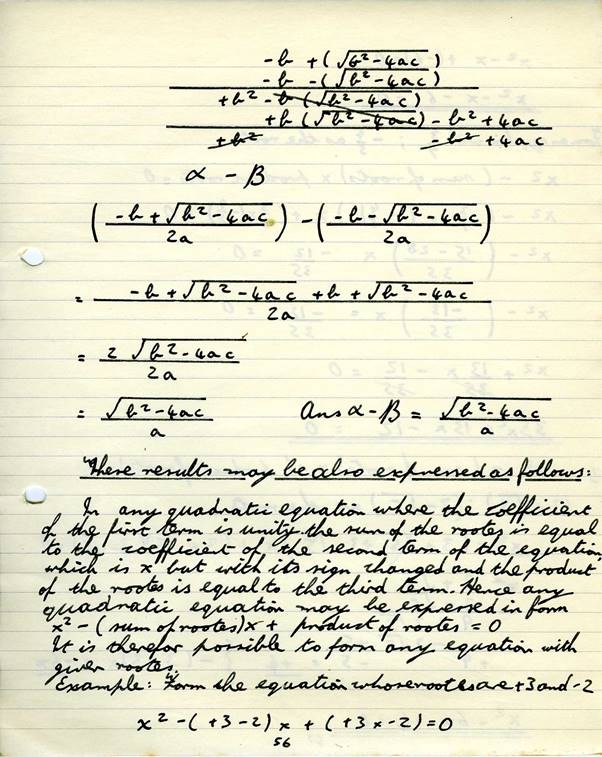 -b + (√b²-4ac)
-b - (√b²-4ac)
+b² - b (√b²-4ac)
+b (√b²-4ac) - b² + 4ac
+b² - b² + 4ac
α - β
(-b + √b²-4ac / 2a) - (-b - √b²-4ac / 2a)
= -b + √b²-4ac + b + √b²-4ac / 2a
= 2 √b²-4ac / 2a
= √b²-4ac / a Ans α - β = √b²-4ac / a
"These results may be also expressed as follows:
In any quadratic equation where the coefficient
of the first term is unity the sum of the rootes is equal
to the coefficient of the second term of the equation,
which is x but with its sign changed and the product
of the rootes is equal to the third term. Hence any
quadratic equation may be expressed in form
x² - (sum of rootes)x + product of rootes = 0
It is therefor possible to form any equation with
given rootes."
Example: Form the equation whose rootes are +3 and -2
x² - (+3-2)x + (+3x-2)=0
56